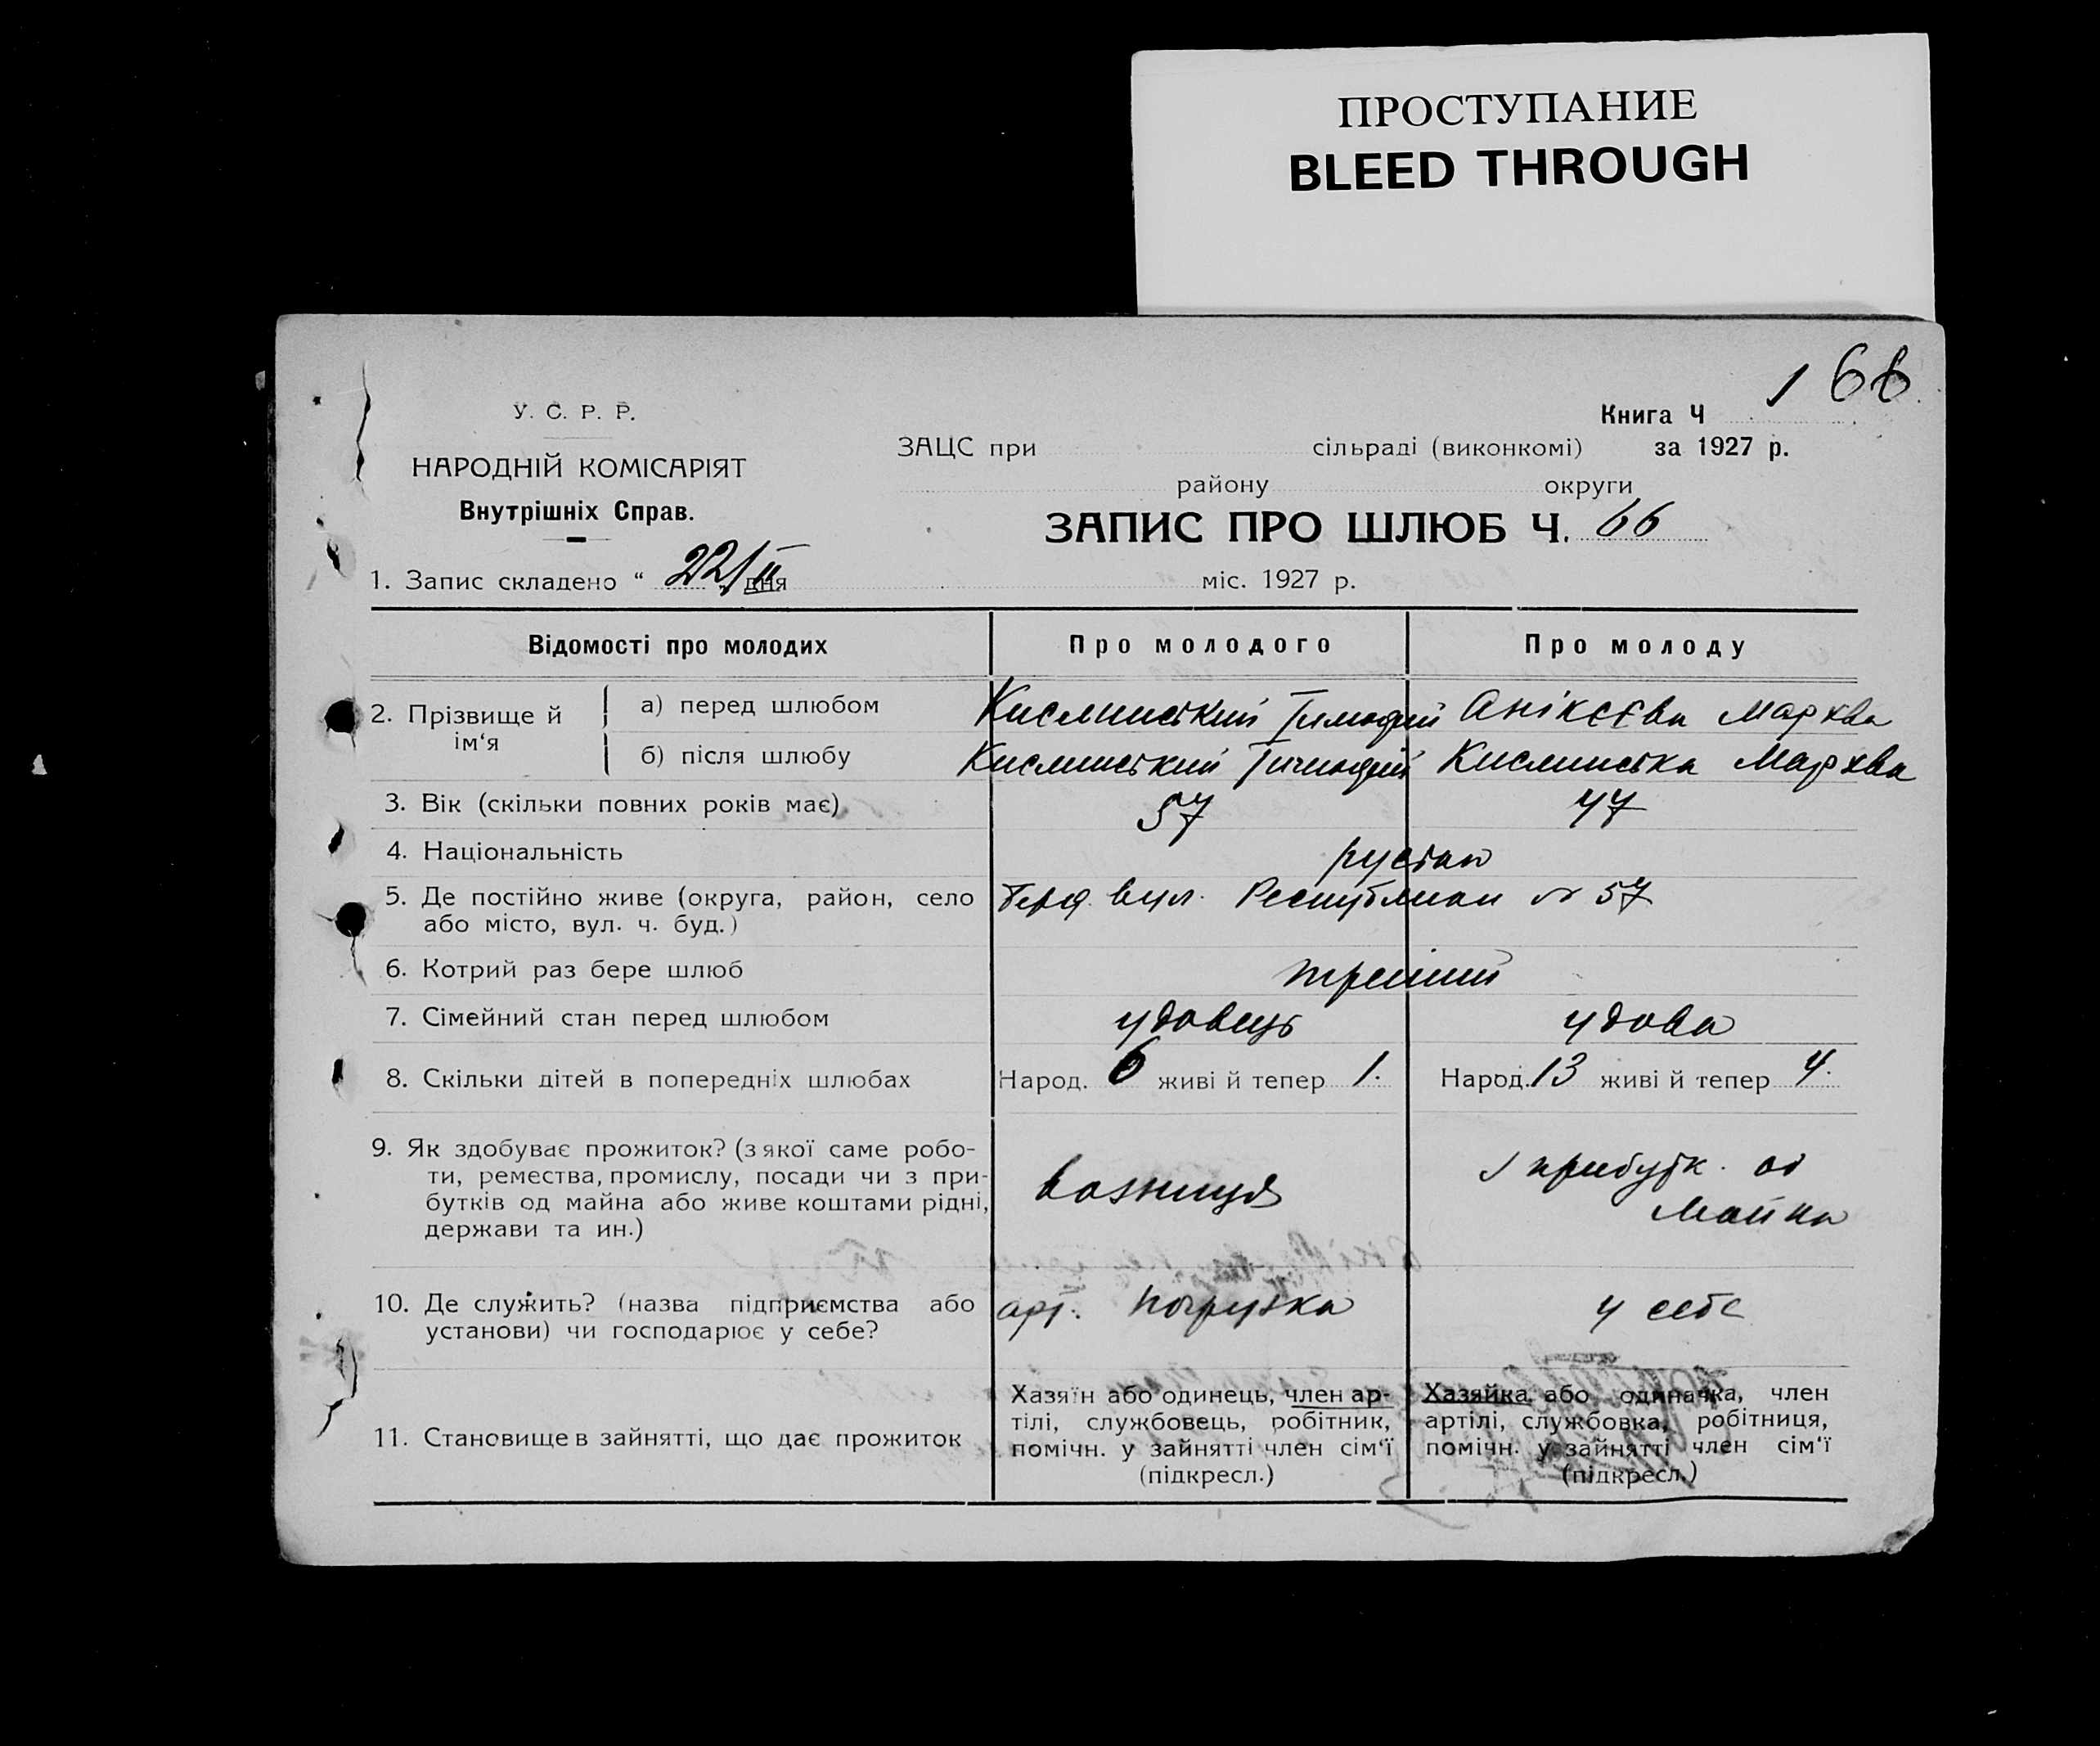 ПРОСТУПАНИЕ
BLEED THROUGH
166
У. С. Р. Р.
НАРОДНІЙ КОМІСАРІЯТ
Внутрішніх Справ.
Книга Ч
ЗАЦС при сільраді (виконкомі) за 1927 р.
району округи
ЗАПИС ПРО ШЛЮБ Ч. 66
1. Запис складено “ 22/II дня міс. 1927 р.
Відомості про молодих Про молодого Про молоду
2. Прізвище й ім‘я
а) перед шлюбом Тимофій Анікєєва Мархва
б) після шлюбу Тимофій Мархва
3. Вік (скільки повних років має) 57 47
4. Національність
5. Де постійно живе (округа, район, село або місто, вул. ч. буд.)
вул. Республики № 57
6. Котрий раз бере шлюб третій
7. Сімейний стан перед шлюбом удовець удова
8. Скільки дітей в попередніх шлюбах Народ. 6 живі й тепер 1. Народ. 13 живі й тепер 4.
9. Як здобуває прожиток? (з якої саме робо-
ти, ремества, промислу, посади чи з при-
бутків од майна або живе коштами рідні,
держави та ин.)
возниця
з прибутк. од
майна
10. Де служить? (назва підприємства або
установи) чи господарює у себе?
арт. погрузка
у себе
11. Становище в зайнятті, що дає прожиток
Хазяїн або одинець, член ар-
тілі, службовець, робітник,
помічн. у зайнятті член сім‘ї
(підкресл.)
Хазяйка або одиначка, член
артілі, службовка, робітниця,
помічн. у зайнятті член сім‘ї
(підкресл.)